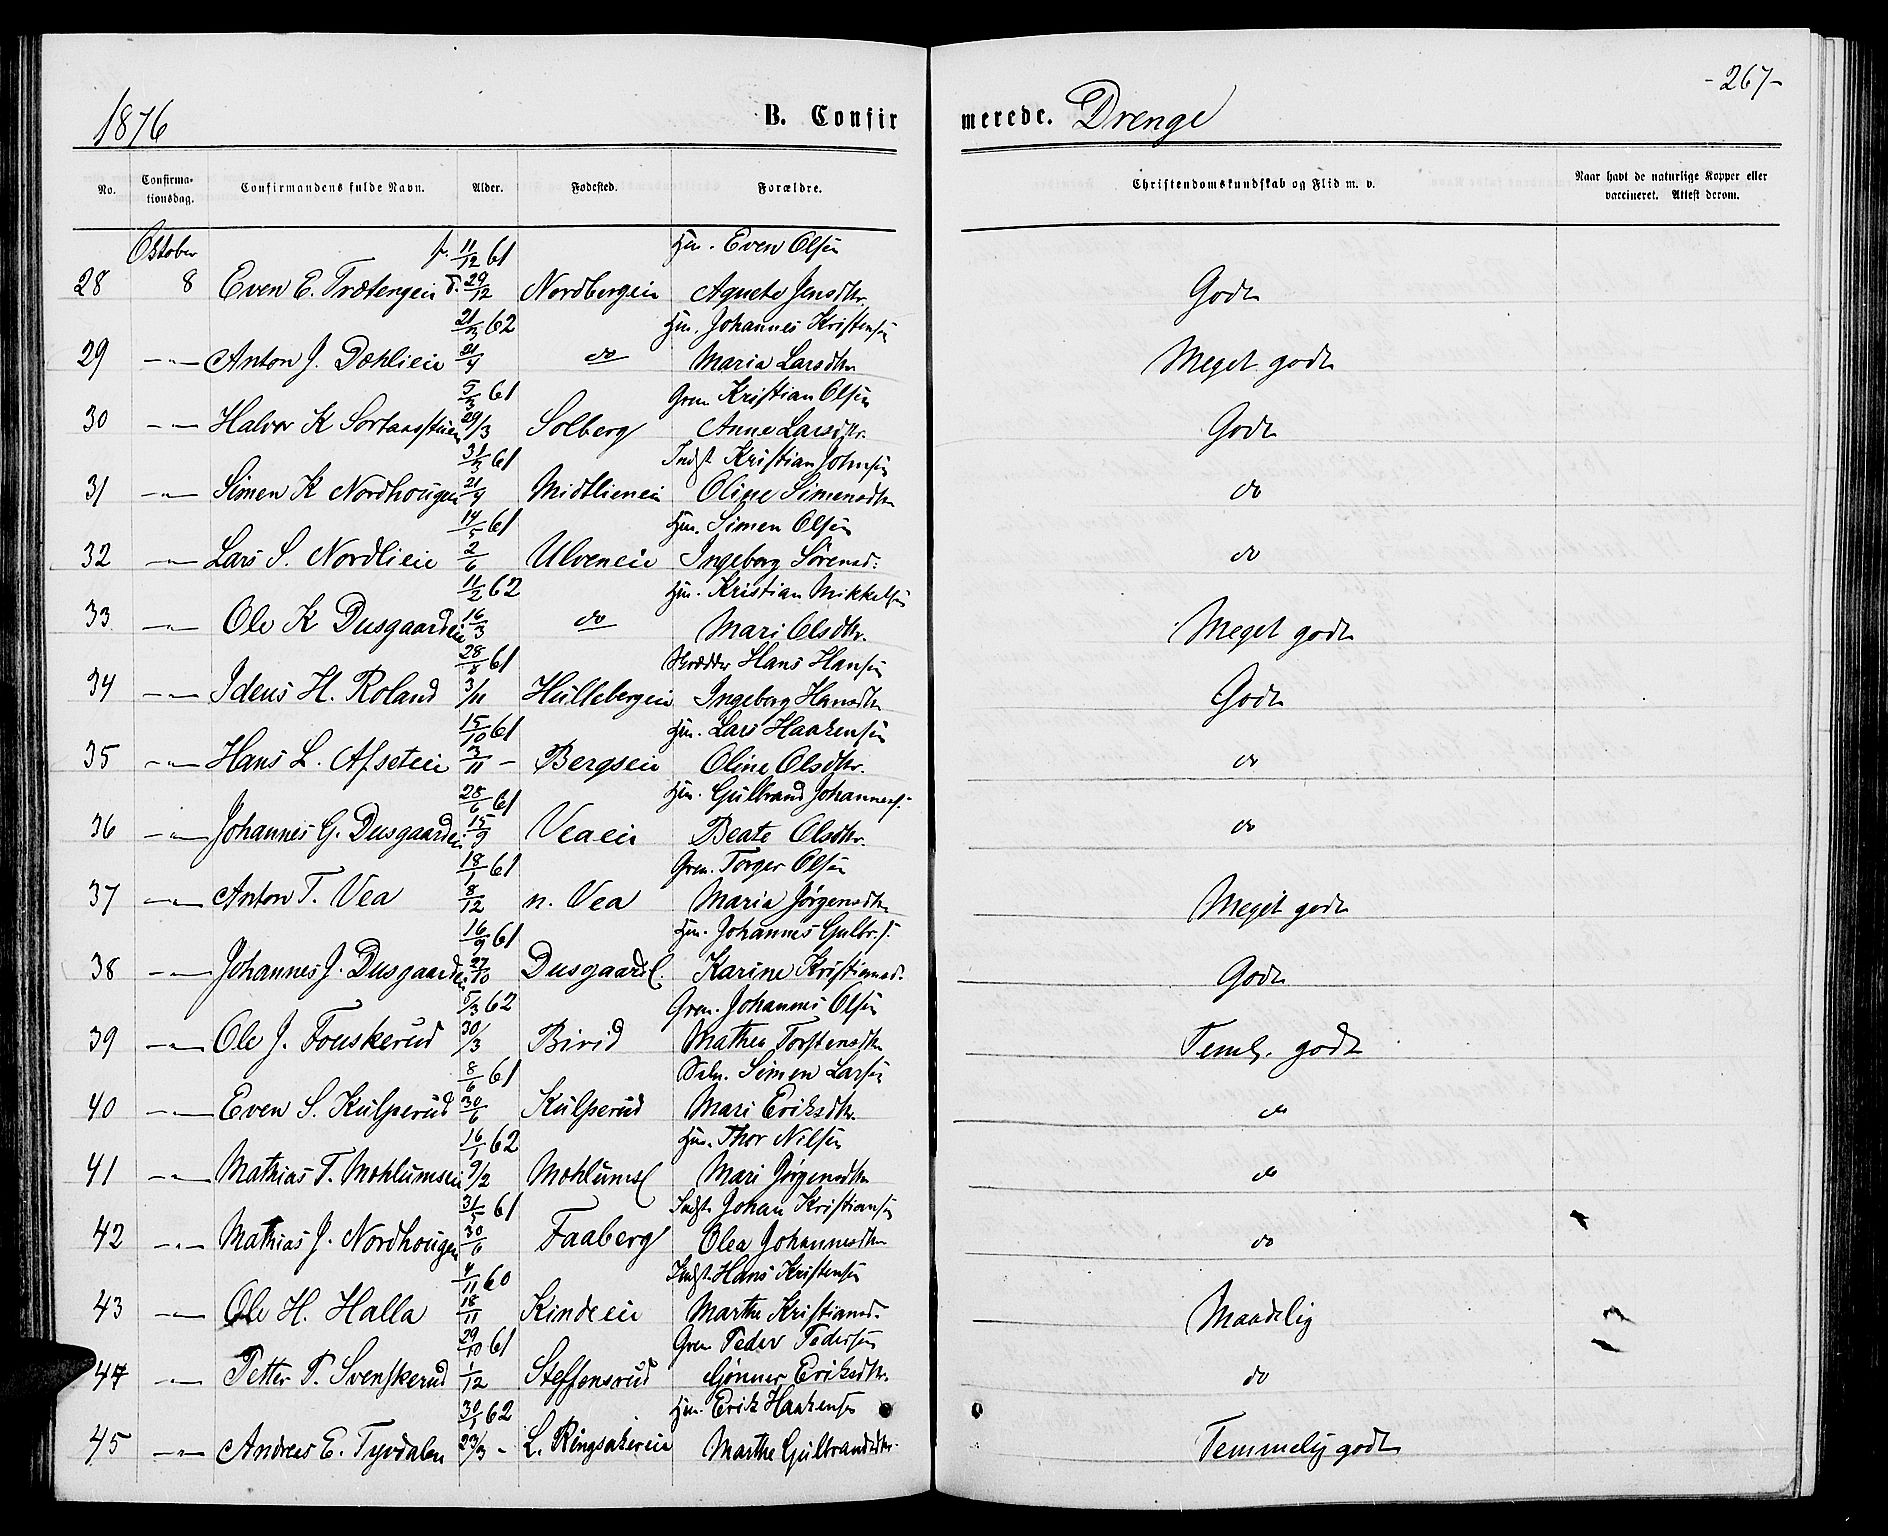 -267-
1876 B. Confirmerede. Drenge
No. Confirma-tionsdag. Confirmandens fulde Navn. Alder. Fødested. Forældre. Christendomskundskab og Flid m. v. Naar havt de naturlige Kopper eller vaccineret. Attest derom.
Oktober f. 11/12 61 Hm. Even Olsen
28 8 Even E. Trætengen d. 29/12 Nordbergein Agnete Jensdtr. Godt
21/3 62 Hm. Johannes Kristensen
29 -"- Anton J. Dæhlien 21/4 do Maria Larsdtr Meget godt
5/3 61 Grm. Kristian Olsen
30 -"- Halvor K 29/3 Solberg Anne Larsdtr. Godt
31/3 61 Indst Kristian Johnsen
31 -"- Simen K Nordhougen 21/4 Midtlienein Oline Simensdtr do
14/5 61 Hm. Simen Olsen
32 -"- Lars S. Nordlien 2/6 Ulvenein Ingeborg Sørensd. do
11/2 62 Hm. Kristian Mikkelsen
33 -"- Ole K Dusgaardein 16/3 do Mari Olsdtr. Meget godt
28/8 61 Skrædder Hans Hansen
34 -"- Idens H. Roland 3/11 Hullebergein Ingeborg Hansdtr Godt
15/10 61 Hm. Lars Haakensen
35 -"- Hans L. Afsetein 3/11 - Bergsein Oline Olsdtr. do
28/6 61 Hm. Gulbrand Johannes.
36 -"- Johannes G. Dusgaardein 15/9 Veaein Beate Olsdtr. do
18/1 61 Grm. Torger Olsen
37 -"- Anton T. Vea 8/12 n. Vea Maria Jørgensdtr Meget godt
16/9 61 Hm. Johannes Gulbr.s.
38 -"- Johannes J. Dusgaardein 27/10 Dusgaards. Karine Kristiansd. Godt
5/3 62 Grm. Johannes Olsen
39 -"- Ole J. Fouskerud 30/3 Birid Mathea Torstensdtr Teml. godt
8/6 61 Selv. Simen Larsen
40 -"- Even S. Kulperud 30/6 Kulperud Mari Eriksdtr. do
16/1 62 Hm. Thor Nilsen
41 -"- Mathias T. Mæhlumsein 9/2 Mæhlums Mari Jørgensdtr do
31/5 61 Indst. Johan Kristiansen
42 -"- Mathias J. Nordhougen 30/6 Faaberg Olea Johannesdtr do
4/11 60 Indst. Hans Kristensen
43 -"- Ole H. Halla 18/11 Kindein Marthe Kristiansd. Maadelig
29/10 61 Grm Peder Pedersen
44 -"- Petter P. Svenskerud 1/12 Steffensrud Gønner Eriksdtr. do
30/1 62 Hm. Erik Haakensen
45 -"- Andreas E. Tyvdalen 23/3 - L. Ringsakerein Marthe Gulbrandsdtr. Temmelig godt